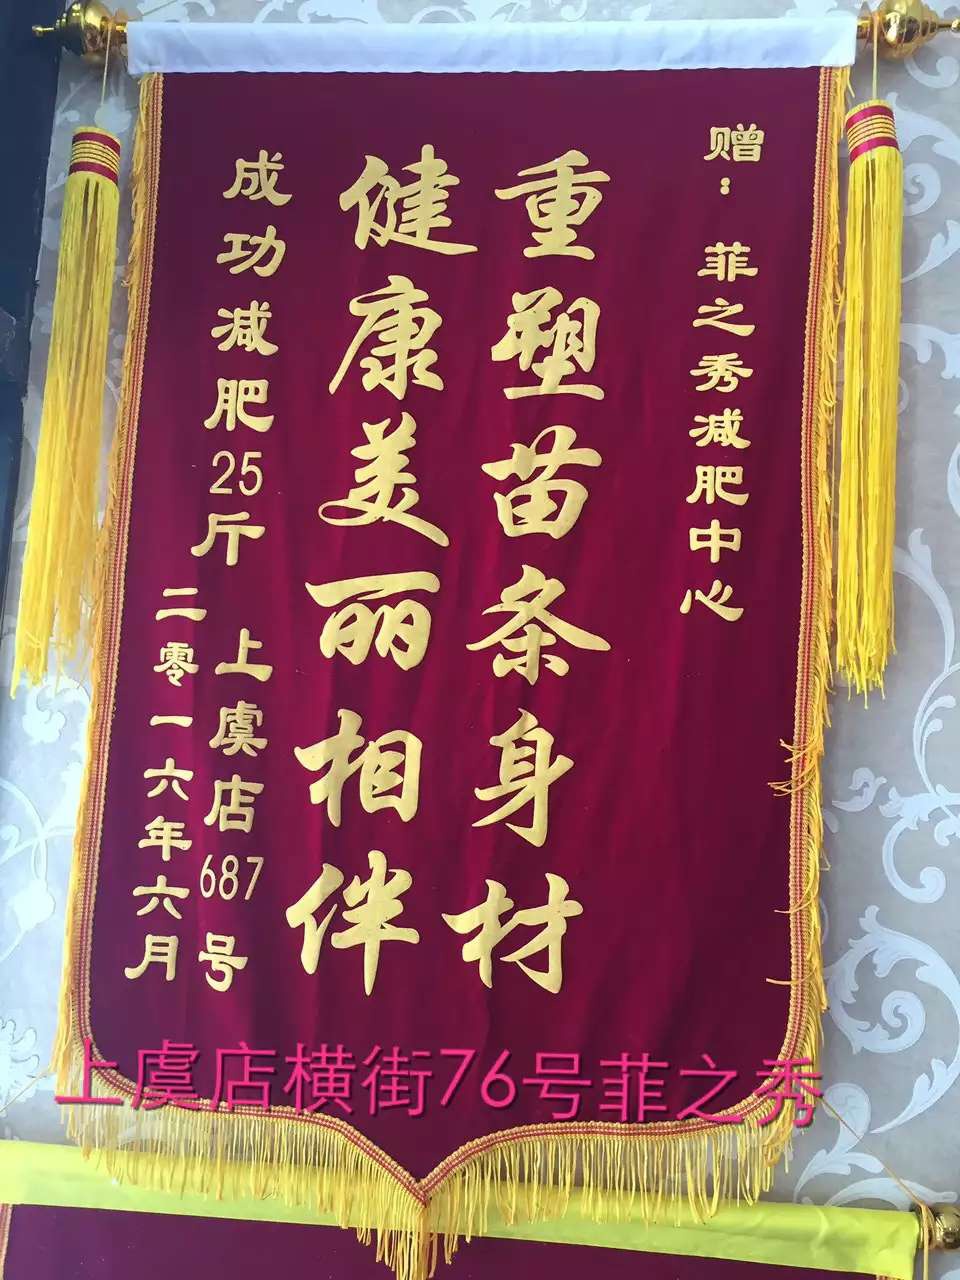 赠：菲之秀减肥中心
重塑苗条身材
健康美丽相伴
成功减肥25斤
上虞店687号
二零一六年六月
上虞店横街76号菲之秀